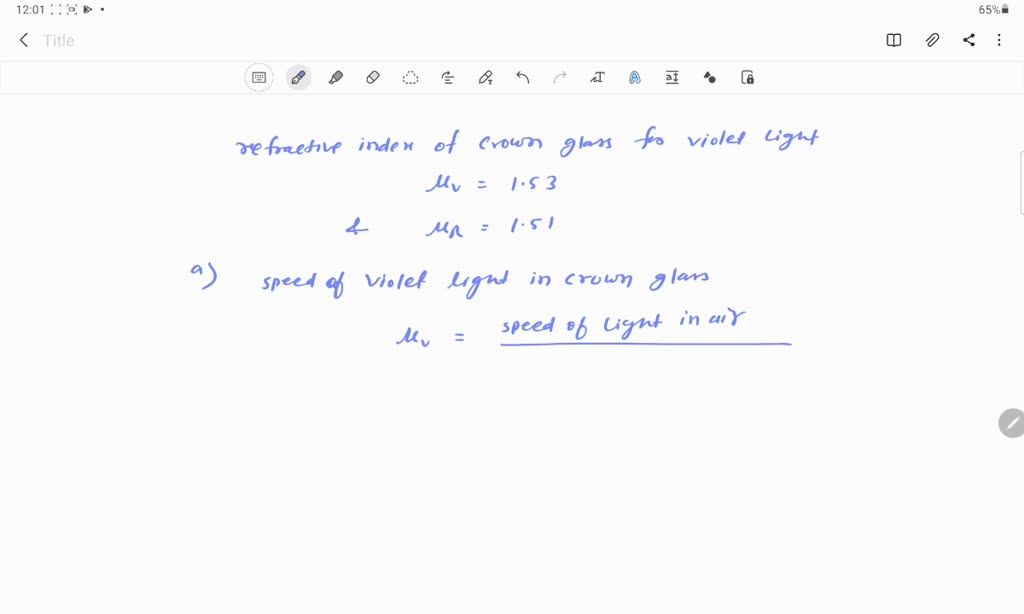 12:01
65%
Title
refractive index of crown glass for violet light
μv = 1.53
& μR = 1.51
a) speed of violet light in crown glass
μv = speed of light in air